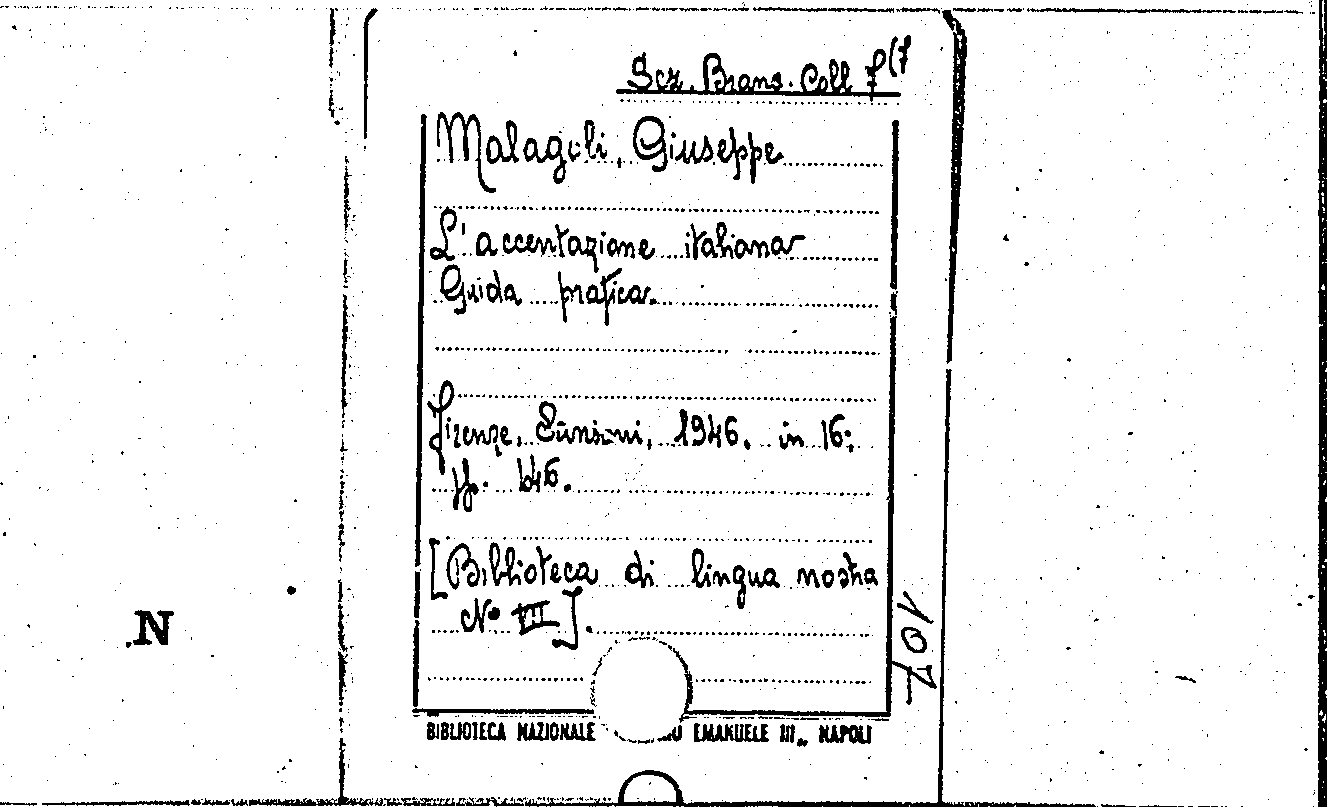 Sez. Branc. Coll 7 (7
Malagoli, Giuseppe
L'accentazione italiana
Guida pratica.
Firenze, Sansoni, 1946. in 16;
pp. 146.
[Biblioteca di lingua nostra
N° VII].
107
N
BIBLIOTECA NAZIONALE EMANUELE III„ NAPOLI